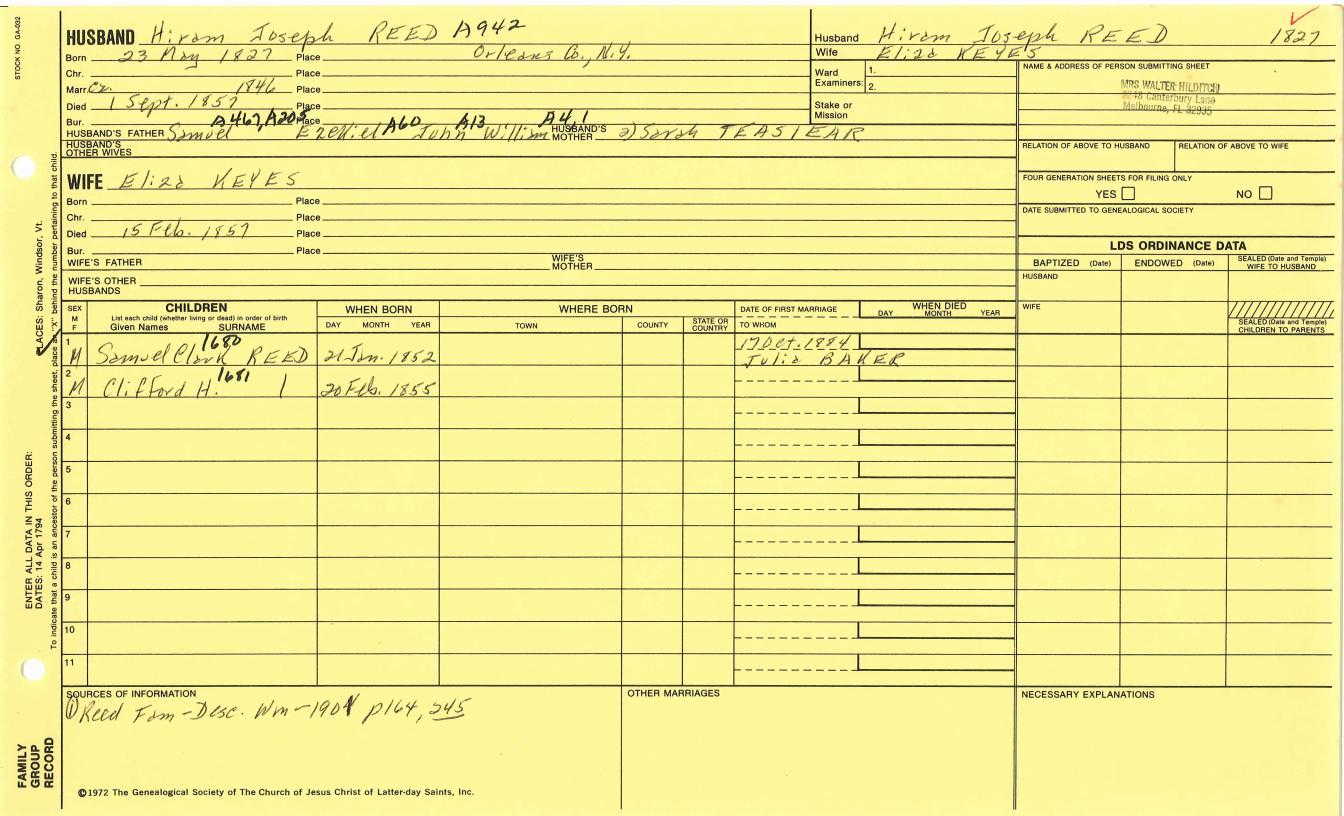 STOCK NO. GA-032
HUSBAND Hiram Joseph REED A942
Born 23 May 1827 Place Orleans Co., N.Y.
Chr. Place
Marr. Ca. 1846 Place
Died 1 Sept. 1857 Place
Bur. Place
A467, A205 A60 A13 A4,1
HUSBAND'S FATHER Samuel Ezekiel John William HUSBAND'S MOTHER 2) Sarah
HUSBAND'S OTHER WIVES
Husband Hiram Joseph REED 1827
Wife Eliza KEYES
Ward Examiners: 1.
2.
Stake or Mission
NAME & ADDRESS OF PERSON SUBMITTING SHEET
MRS. WALTER HILDITCH
Canterbury Lane
Melbourne, FL 32935
RELATION OF ABOVE TO HUSBAND RELATION OF ABOVE TO WIFE
FOUR GENERATION SHEETS FOR FILING ONLY
YES NO
DATE SUBMITTED TO GENEALOGICAL SOCIETY
WIFE Eliza KEYES
Born Place
Chr. Place
Died 15 Feb. 1857 Place
Bur. Place
WIFE'S FATHER WIFE'S MOTHER
WIFE'S OTHER HUSBANDS
LDS ORDINANCE DATA
BAPTIZED (Date) ENDOWED (Date) SEALED (Date and Temple) WIFE TO HUSBAND
HUSBAND
WIFE
SEALED (Date and Temple) CHILDREN TO PARENTS
SEX M F
CHILDREN
List each child (whether living or dead) in order of birth
Given Names SURNAME
WHEN BORN
DAY MONTH YEAR
WHERE BORN
TOWN COUNTY STATE OR COUNTRY
DATE OF FIRST MARRIAGE
TO WHOM
WHEN DIED
DAY MONTH YEAR
1 M Samuel Clark 1680 REED 21 Jan. 1852 17 Oct. 1884
Julia BAKER
2 M Clifford H. 1681 20 Feb. 1855
3
4
5
6
7
8
9
10
11
SOURCES OF INFORMATION
① Reed Fam-Desc. Wm-1901 p164, 245
OTHER MARRIAGES
NECESSARY EXPLANATIONS
©1972 The Genealogical Society of The Church of Jesus Christ of Latter-day Saints, Inc.
FAMILY GROUP RECORD
ENTER ALL DATA IN THIS ORDER:
DATES: 14 Apr 1794
PLACES: Sharon, Windsor, Vt.
To indicate that a child is an ancestor of the person submitting the sheet, place an "X" behind the number pertaining to that child.